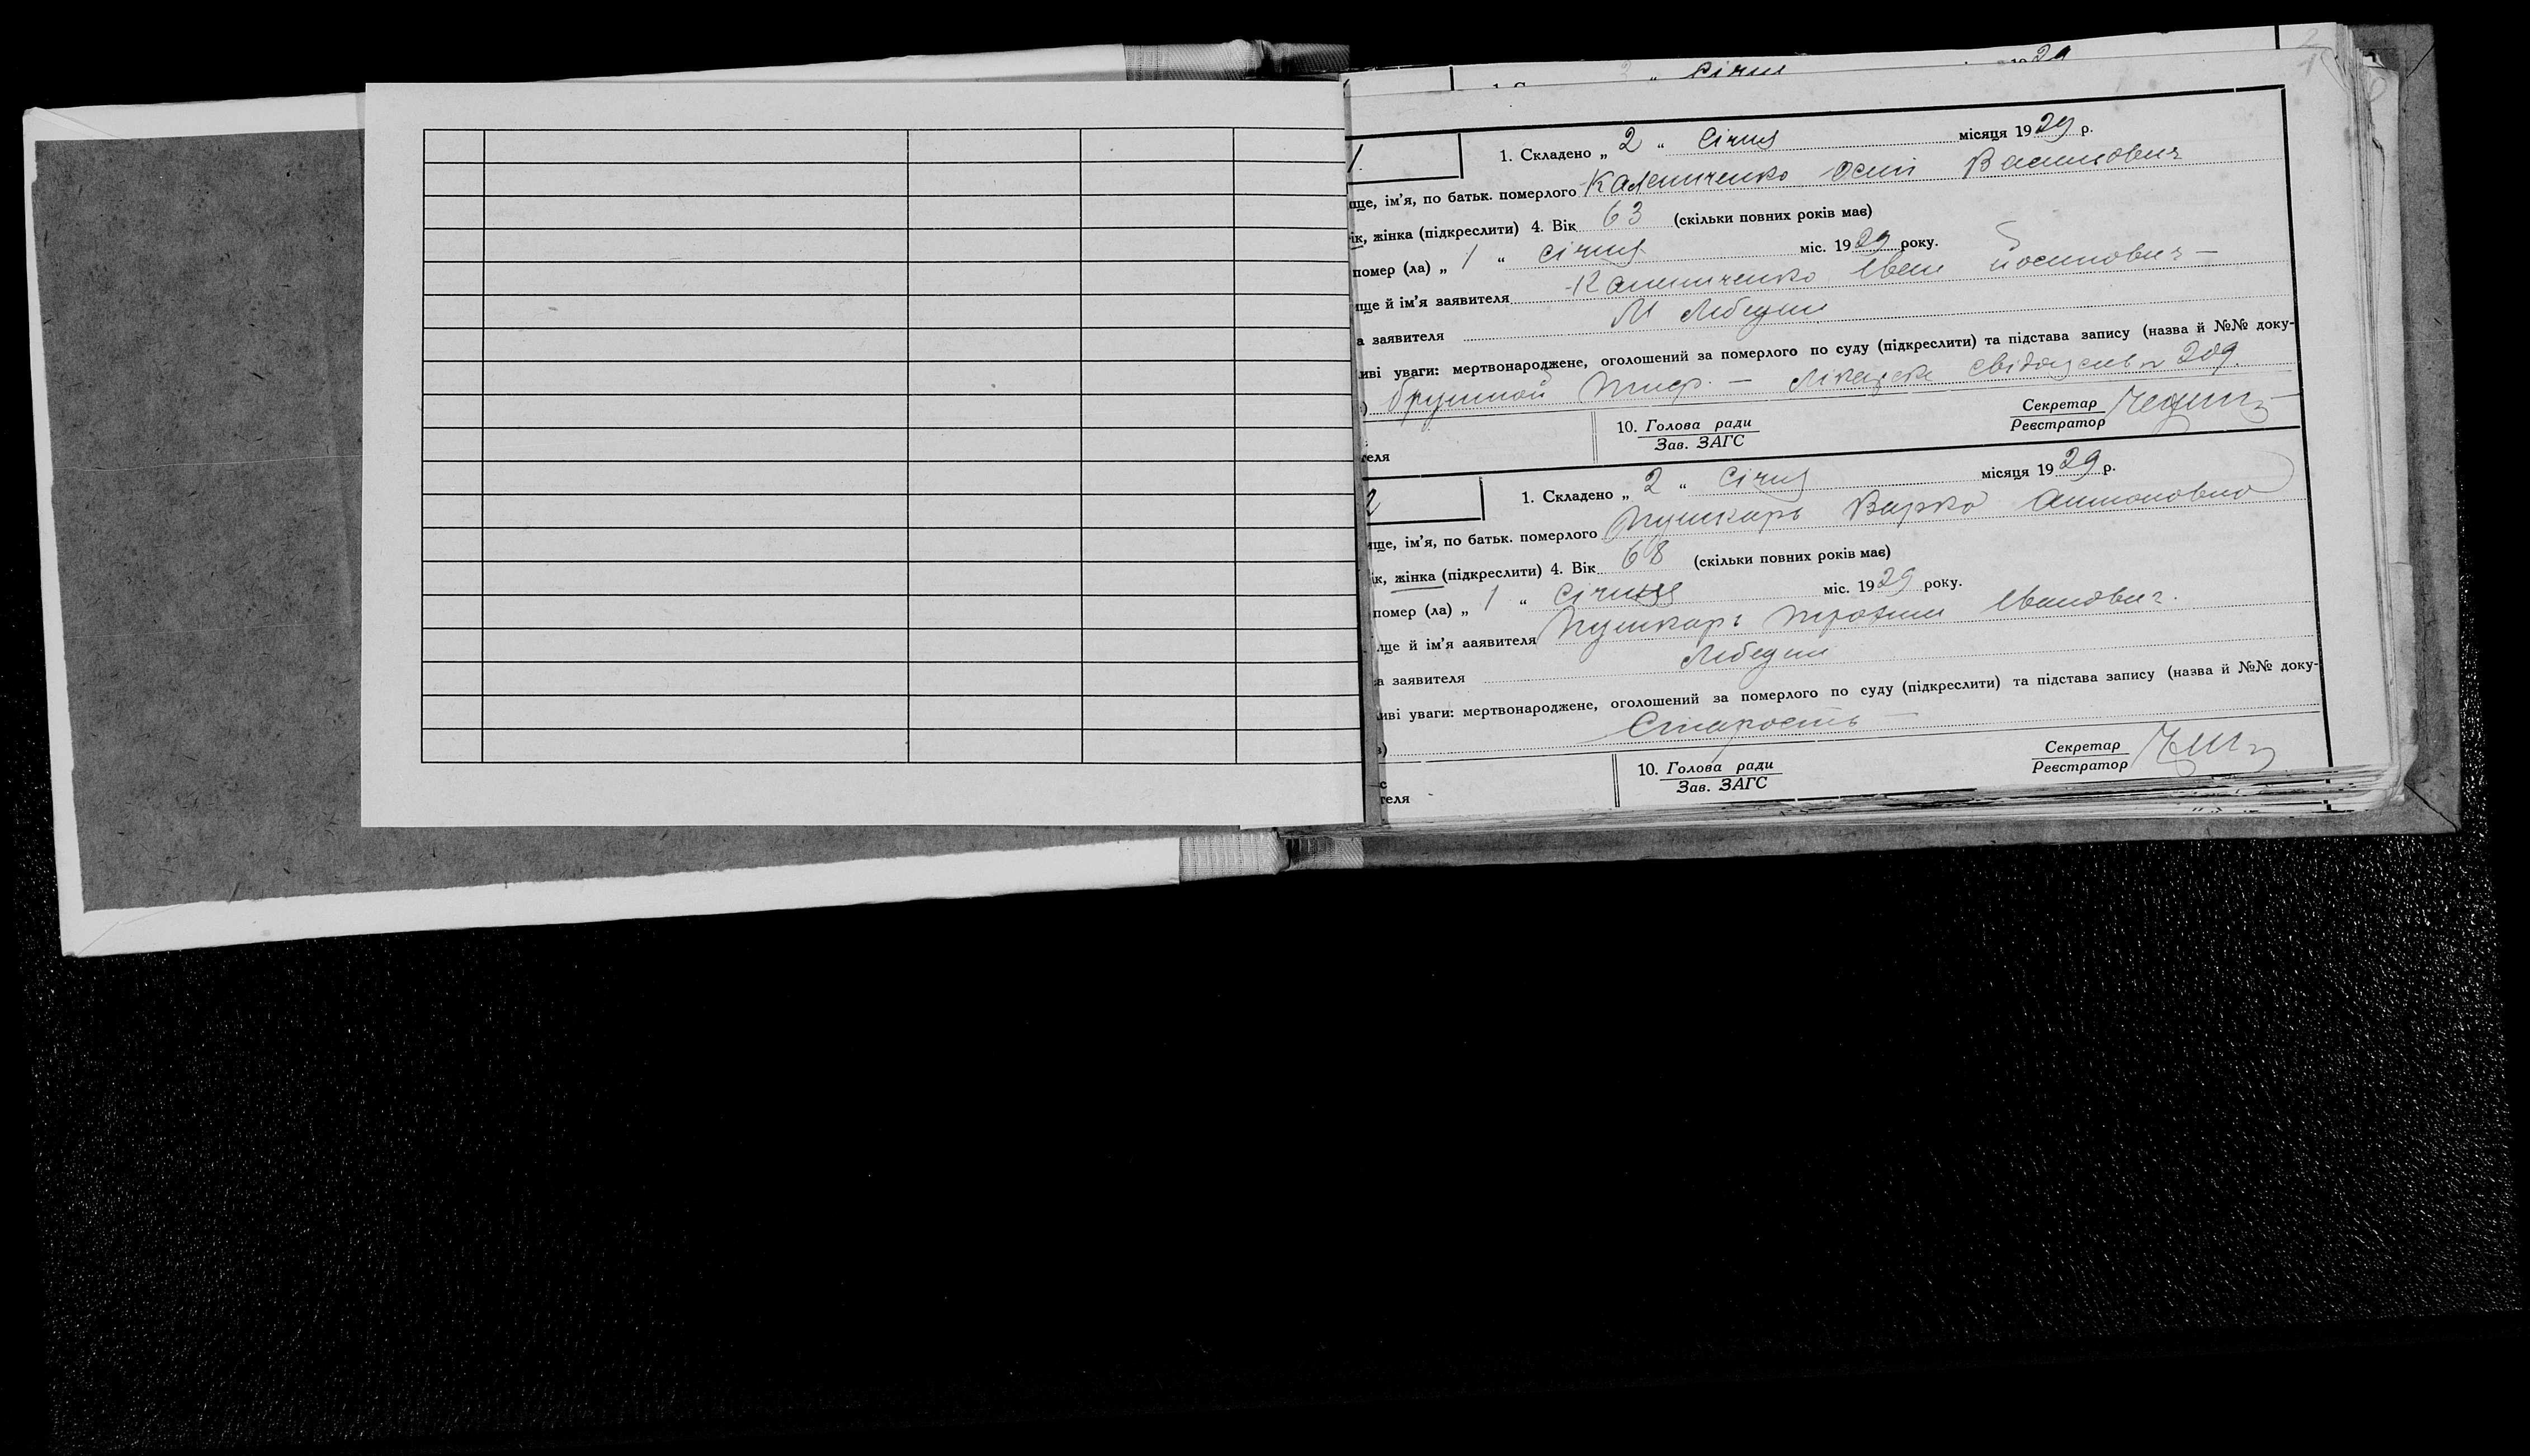 Січня 29
1.
1. Складено „ 2 “ Січня місяця 1929 р.
ище, ім'я, по батьк. померлого Калениченко Осип Василович
ік, жінка (підкреслити) 4. Вік 63 (скільки повних років має)
помер (ла) „ 1 “ Січня міс. 1929 року.
ище й ім'я заявителя Калениченко Іван Йосипович —
а заявителя М Лебедин
иві уваги: мертвонароджене, оголошений за померлого по суду (підкреслити) та підстава запису (назва й №№ доку-
) брушной тиф. — Лікарське 209.
10. Голова ради Секретар
Зав. ЗАГС Реєстратор
теля
2
1. Складено „ 2 “ Січня місяця 1929 р.
ище, ім'я, по батьк. померлого Пушкарь Варка Антоновна
ік, жінка (підкреслити) 4. Вік 68 (скільки повних років має)
помер (ла) „ 1 “ Січня міс. 1929 року.
ище й ім'я ааявителя Пушкарь Трохим Іванович.
а заявителя Лебедин
иві уваги: мертвонароджене, оголошений за померлого по суду (підкреслити) та підстава запису (назва й №№ доку-
в) Старость —
10. Голова ради Секретар
Зав. ЗАГС Реєстратор
с
теля